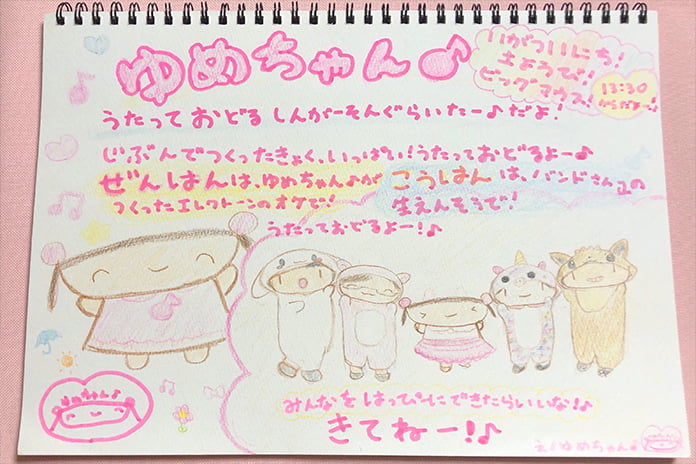 ゆめちゃん♪
いがついにち!
土ようび!
ビッグマウス!
13:30
からだよー!
うたっておどるしんがーそんぐらいたー♪だよ!
じぶんでつくったきょく、いっぱい!うたっておどるよー♪
ぜんはんは、ゆめちゃん♪が
つくったエレクトーンのオケで!
こうはんは、バンドさんの
生えんそうで!
うたっておどるよー!♪
みんなをはっぴーにできたらいいな!♪
きてねー!♪
ゆめちゃん♪
え/ゆめちゃん♪